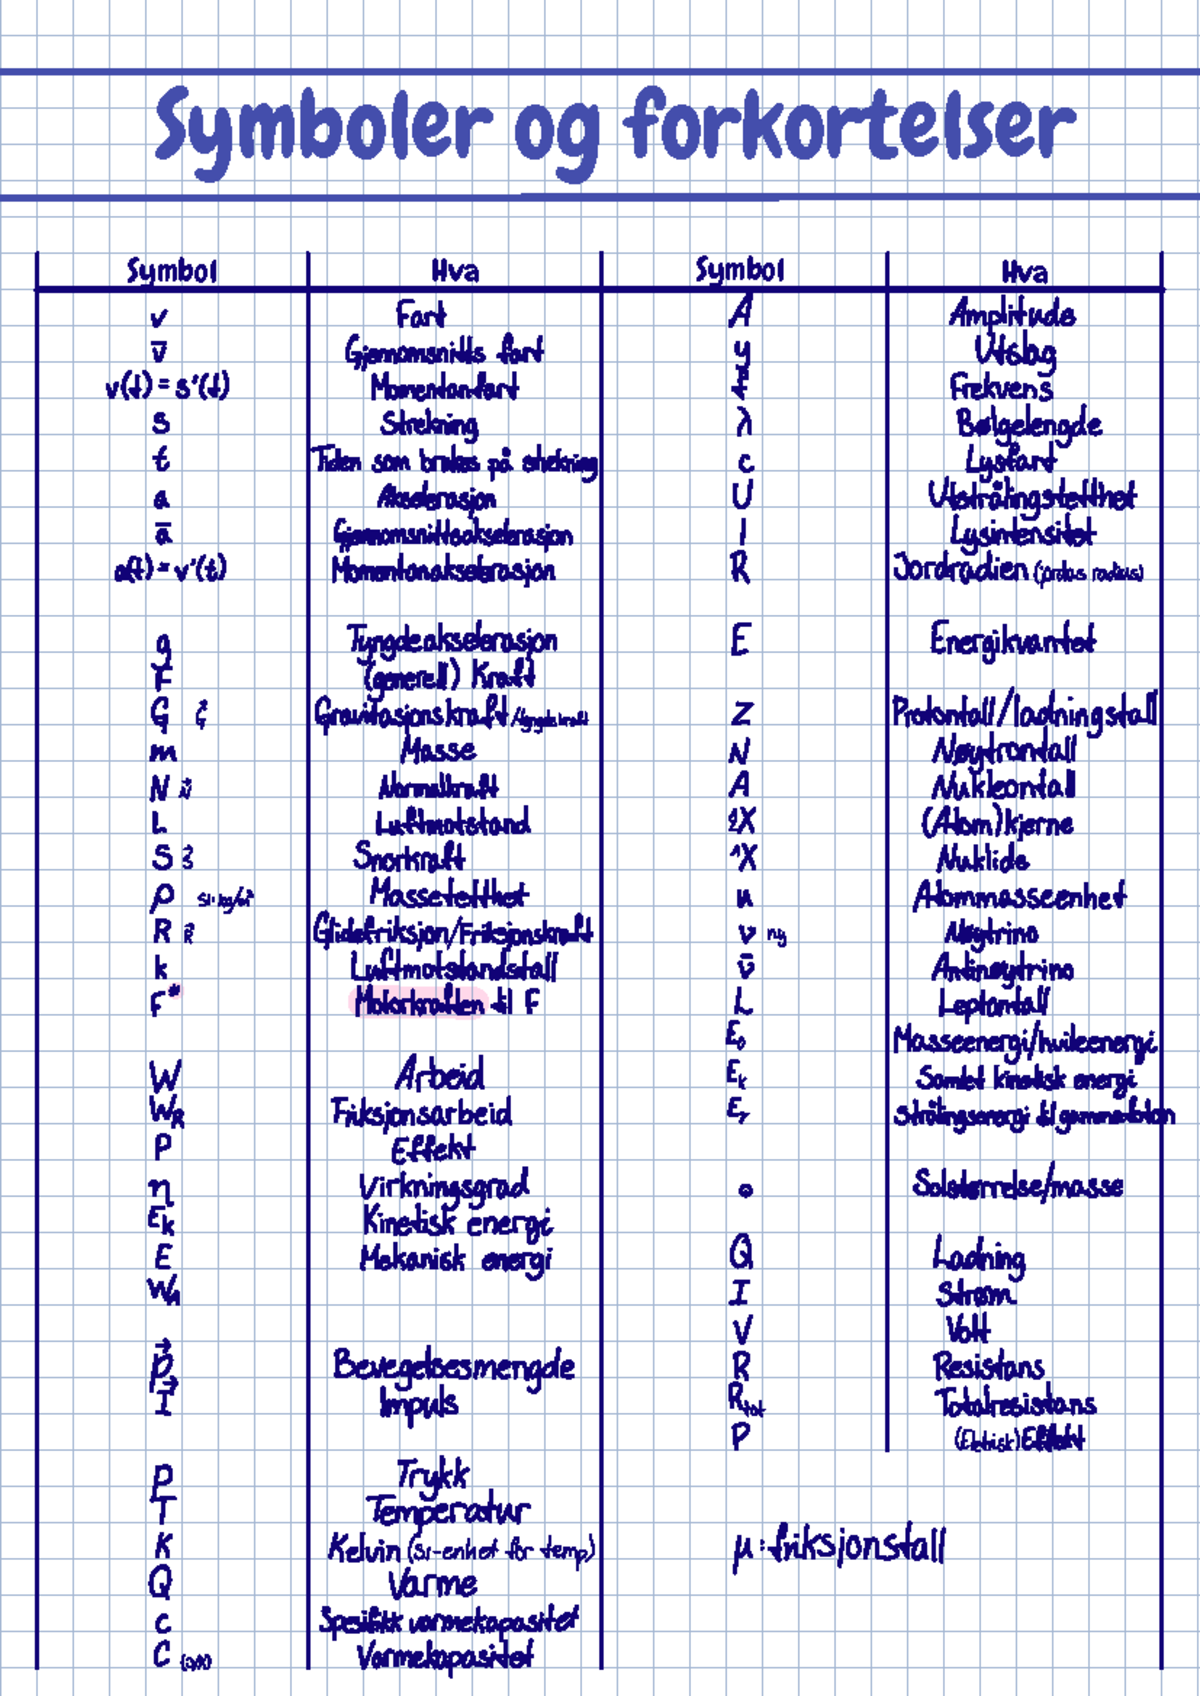 Symboler og forkortelser
Symbol Hva Symbol Hva
v Fart A Amplitude
v̄ Gjennomsnitts fart y Utslag
v(t) = s'(t) Momentanfart f Frekvens
s Strekning λ Bølgelengde
t Tiden som brukes på strekning c Lysfart
a Akselerasjon U Utstrålingstetthet
ā Gjennomsnittsakselerasjon I Lysintensitet
a(t) = v'(t) Momentanakselerasjon R Jordradien (jordas radius)
g Tyngdeakselerasjon E Energikvantet
F (generell) Kraft
G G⃗ Gravitasjonskraft/tyngdekraft Z Protontall/ladningstall
m Masse N Nøytrontall
N N⃗ Normalkraft A Nukleontall
L Luftmotstand X (Atom)kjerne
S S⃗ Snorkraft ᴬX Nuklide
ρ SI: kg/m³ Massetetthet u Atommasseenhet
R R⃗ Glidefriksjon/Friksjonskraft ν ny Nøytrino
k Luftmotstandstall ν̄ Antinøytrino
F* Motorkraften til F L Leptontall
E₀ Masseenergi/hvileenergi
W Arbeid Eₖ Samlet kinetisk energi
W_R Friksjonsarbeid Eᵧ Strålingsenergi til gammafoton
P Effekt
η Virkningsgrad o Solstørrelse/masse
Eₖ Kinetisk energi
E Mekanisk energi Q Ladning
W I Strøm
V Volt
p⃗ Bevegelsesmengde R Resistans
I⃗ Impuls R_tot Totalresistans
P (Elektrisk) Effekt
p Trykk
T Temperatur
K Kelvin (SI-enhet for temp) μ: friksjonstall
Q Varme
c Spesifikk varmekapasitet
C Varmekapasitet